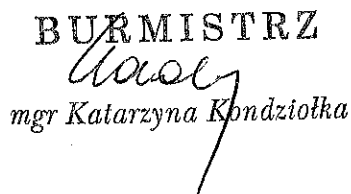 BURMISTRZ
mgr Katarzyna Kondziołka